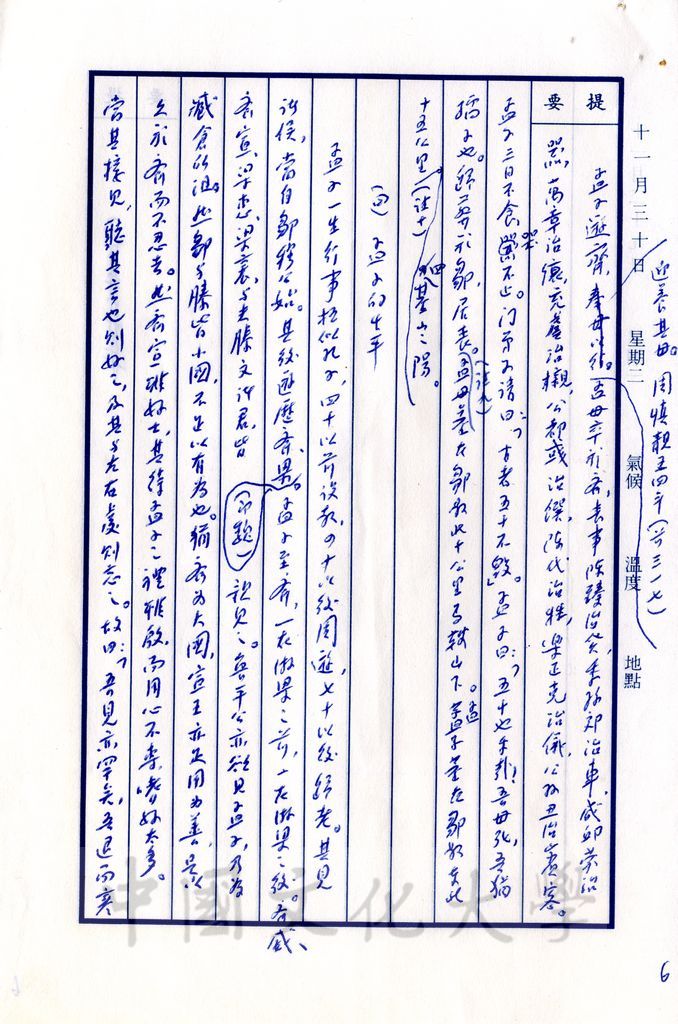 迎養其母。周慎靚王四年(前三一七)
十一月三十日 星期二 氣候 溫度 地點
提要
孟子遊齊,奉母以行。孟母卒於齊,喪事陳臻治貨,季孫郊治車,咸邱蒙治
器,萬章治穰,充虞治櫬,公都彧治饌,陳代治牲,樂正克治儀,公孫丑治賓客。
孟子三日不食,哭不止。門弟子請曰:「古者五十不毀。」孟子曰:「五十也乎哉!吾母死,吾猶
孺子也。」歸葬於鄒,居喪。(註九)孟母墓在鄒縣北十公里馬鞍山下。孟子墓在鄒縣東北
十五公里(註十)四基山之陽。
(四) 孟子的生平
孟子一生行事極似孔子,四十以前設教,四十以後周遊,七十以後歸老。其見
諸侯,當自鄒穆公始。其後遊歷齊、梁。孟子至齊,一在游梁之前,一在游梁之後。齊威、
齊宣、梁惠、梁襄、與夫滕文諸君,皆 親見之。魯平公亦欲見孟子,乃為
臧倉所沮。然鄒與滕皆小國,不足以有為也。獨齊為大國,宣王亦足用為善,是以
久於齊而不忍去。然齊宣雖好士,其待孟子之禮雖殷,而用心不專,嗜好太多。
當其接見,聽其言也則好之,及其與左右處則忘之。故曰:「吾見亦罕矣,吾退而寒
6
中國文化大學